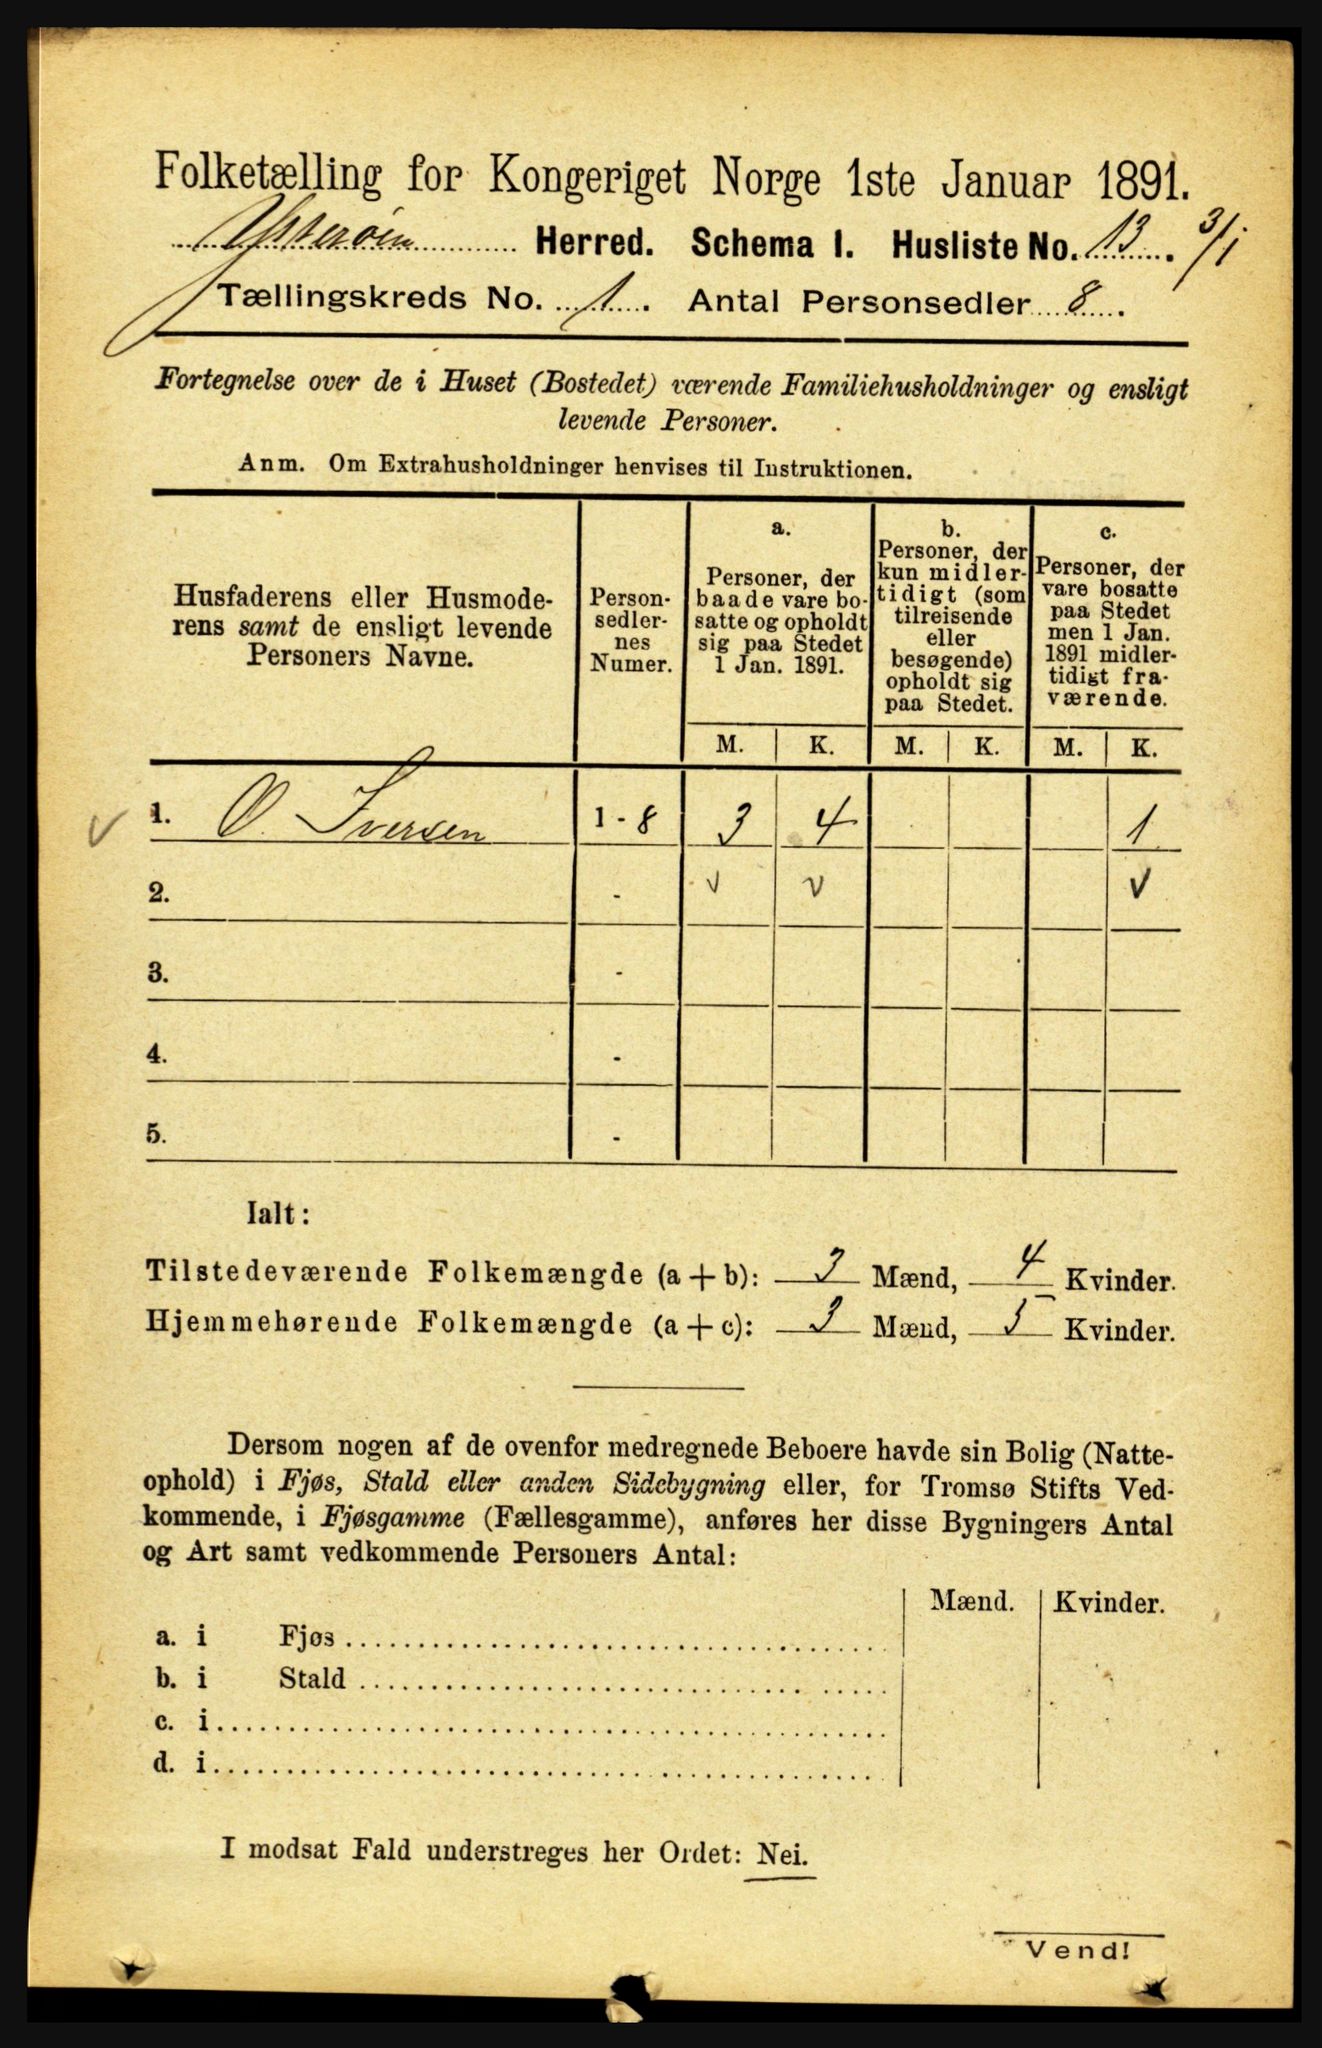 Folketælling for Kongeriget Norge 1ste Januar 1891.
Ytterøen Herred. Schema I. Husliste No. 13. 3/1
Tællingskreds No. 1. Antal Personsedler 8.
Fortegnelse over de i Huset (Bostedet) værende Familiehusholdninger og ensligt
levende Personer.
Anm. Om Extrahusholdninger henvises til Instruktionen.
Husfaderens eller Husmode-
rens samt de ensligt levende
Personers Navne.
Person-
sedler-
nes
Numer.
a.
Personer, der
baade vare bo-
satte og opholdt
sig paa Stedet
1 Jan. 1891.
b.
Personer, der
kun midler-
tidigt (som
tilreisende
eller
besøgende)
opholdt sig
paa Stedet.
c.
Personer, der
vare bosatte
paa Stedet
men 1 Jan.
1891 midler-
tidigt fra-
værende.
M. K. M. K. M. K.
v 1. O. Iversen 1 - 8 3 4 1
2. - v v v
3. -
4. -
5. -
Ialt:
Tilstedeværende Folkemængde (a + b): 3 Mænd, 4 Kvinder.
Hjemmehørende Folkemængde (a + c): 3 Mænd, 5 Kvinder.
Dersom nogen af de ovenfor medregnede Beboere havde sin Bolig (Natte-
ophold) i Fjøs, Stald eller anden Sidebygning eller, for Tromsø Stifts Ved-
kommende, i Fjøsgamme (Fællesgamme), anføres her disse Bygningers Antal
og Art samt vedkommende Personers Antal:
Mænd. Kvinder.
a. i Fjøs
b. i Stald
c. i
d. i
I modsat Fald understreges her Ordet: Nei.
Vend!